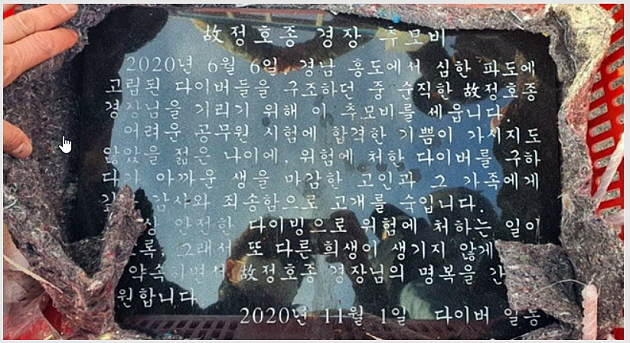 故정호종 경장 추모비
2020년 6월 6일, 경남 홍도에서 심한 파도에
고립된 다이버들을 구조하던 중 순직한 故정호종
경장님을 기리기 위해 이 추모비를 세웁니다.
어려운 공무원 시험에 합격한 기쁨이 가시지도
않았을 젊은 나이에, 위험에 처한 다이버를 구하
다가 아까운 생을 마감한 고인과 그 가족에게
감사와 죄송함으로 고개를 숙입니다.
안전한 다이빙으로 위험에 처하는 일이
그래서 또 다른 희생이 생기지 않게
약속하면서 故정호종 경장님의 명복을 간
원합니다
2020년 11월 1일 다이버 일동